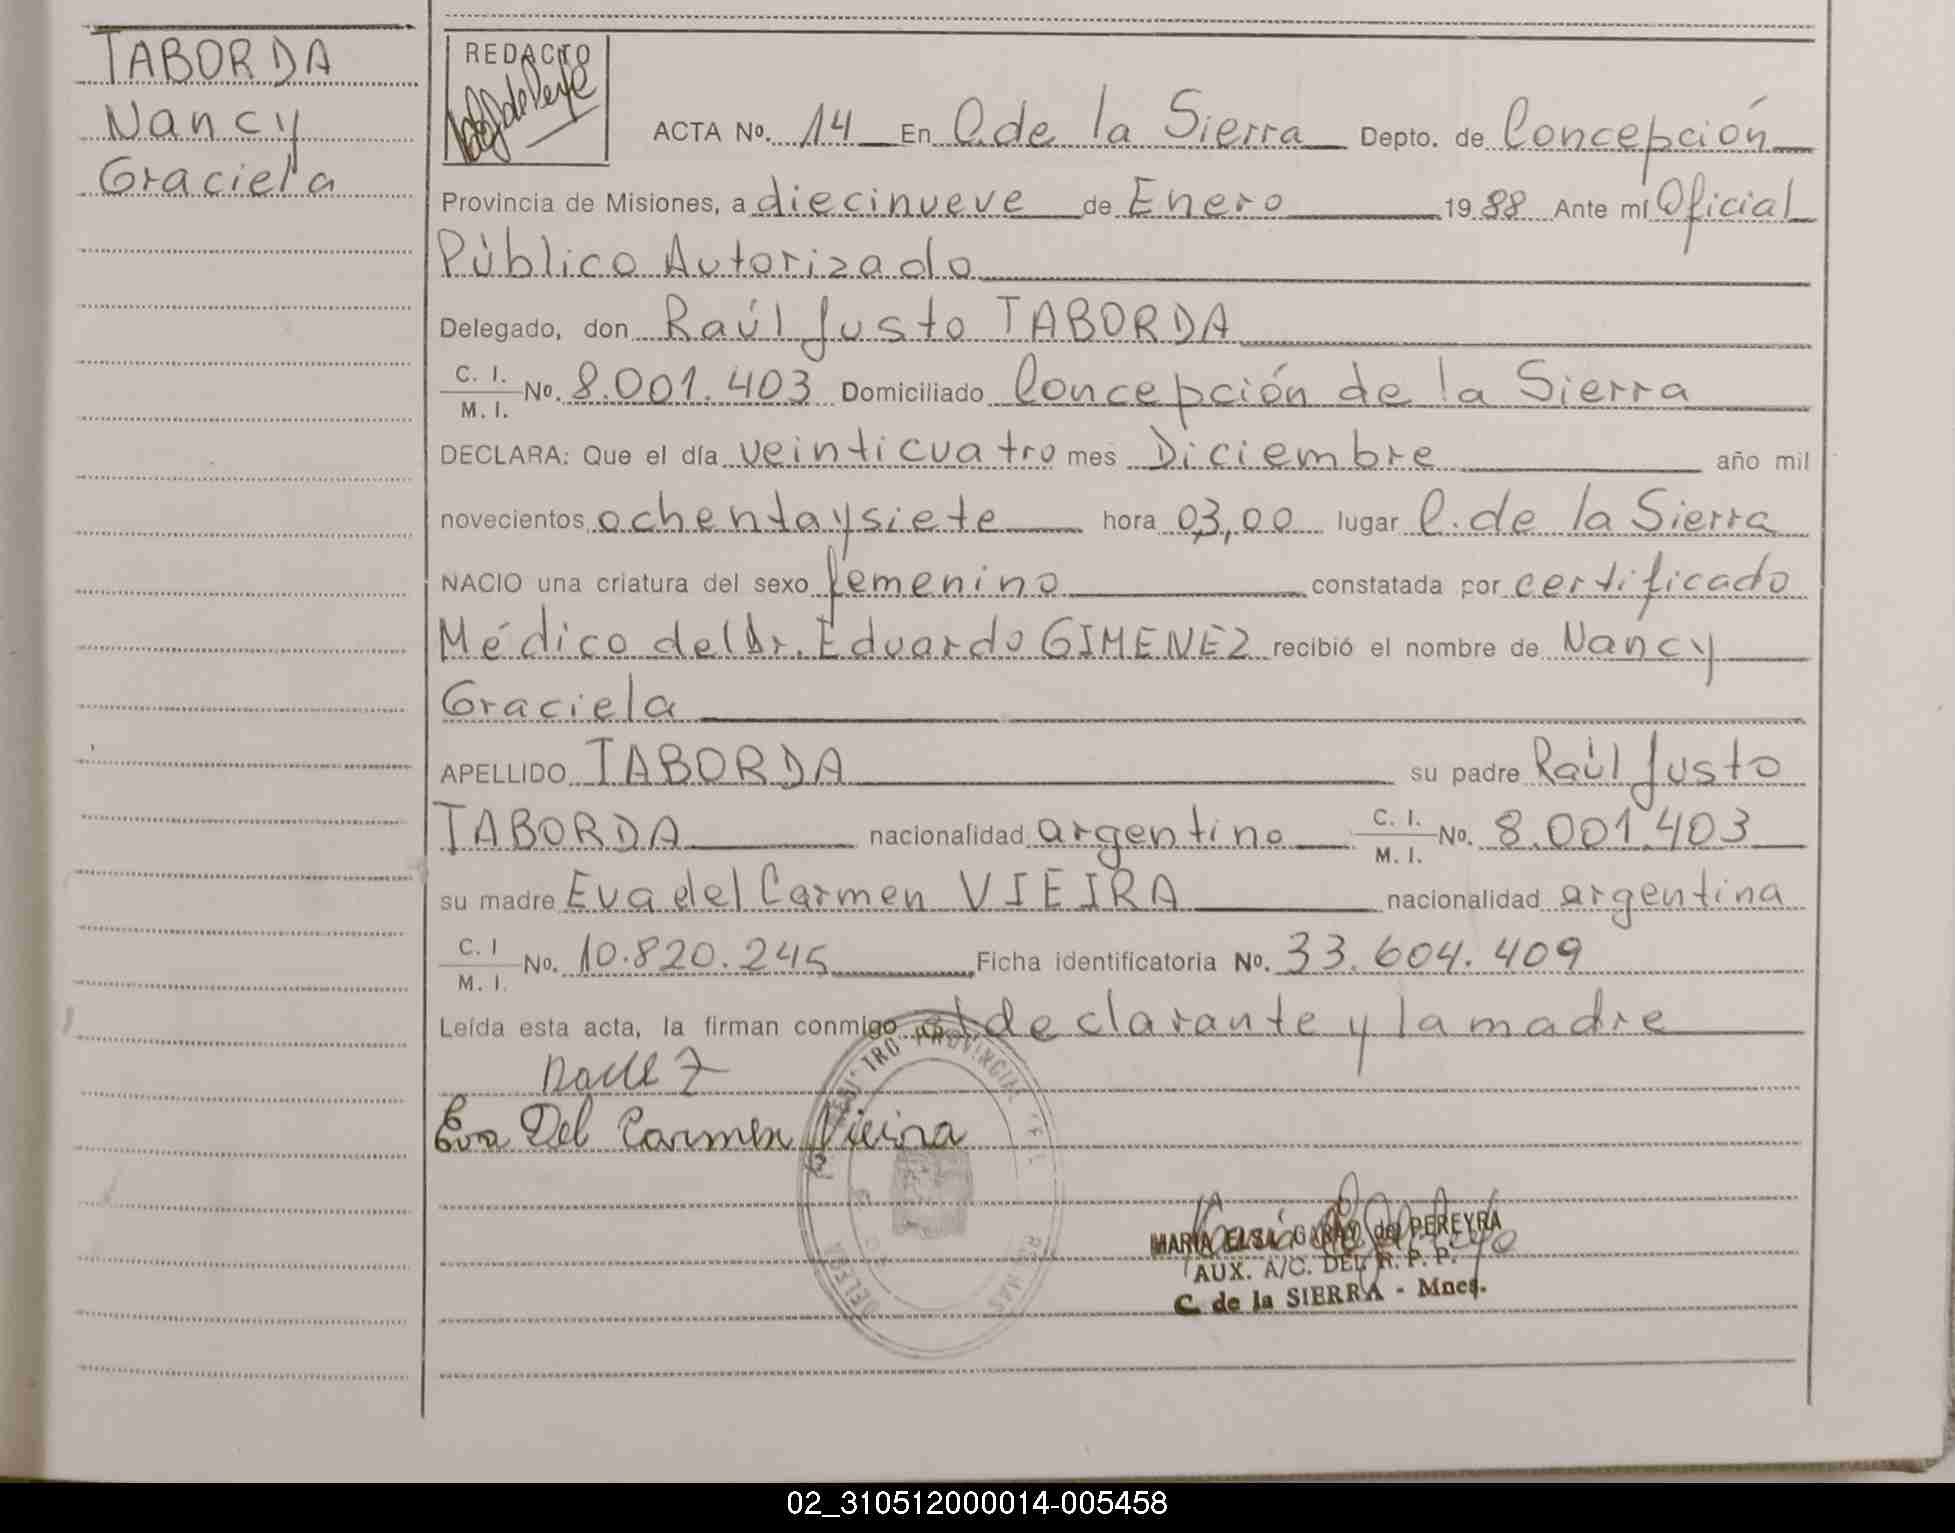 TABORDA
Nancy
Graciela
REDACTO
ACTA No. 14 En C. de la Sierra Depto. de Concepción
Provincia de Misiones, a diecinueve de Enero 1988 Ante mí Oficial
Público Autorizado
Delegado, don Raúl Justo TABORDA
C. I. M. I. No. 8.001.403 Domiciliado Concepción de la Sierra
DECLARA: Que el día veinticuatro mes Diciembre año mil
novecientos ochentaysiete hora 03,00 lugar C. de la Sierra
NACIO una criatura del sexo femenino constatada por certificado
Médico del Dr. Eduardo GIMENEZ recibió el nombre de Nancy
Graciela
APELLIDO TABORDA su padre Raúl Justo
TABORDA nacionalidad argentino C. I. M. I. No. 8.001.403
su madre Eva del Carmen VIEIRA nacionalidad argentina
C. I M. I. No. 10.820.245 Ficha identificatoria No. 33.604.409
Leída esta acta, la firman conmigo el declarante y la madre
Eva Del Carmen Vieira
PROVINCIAL
MARIA ELSA de PEREYRA
AUX. A/C. DEL R. P. P.
C. de la SIERRA - Mnes.
02_310512000014-005458